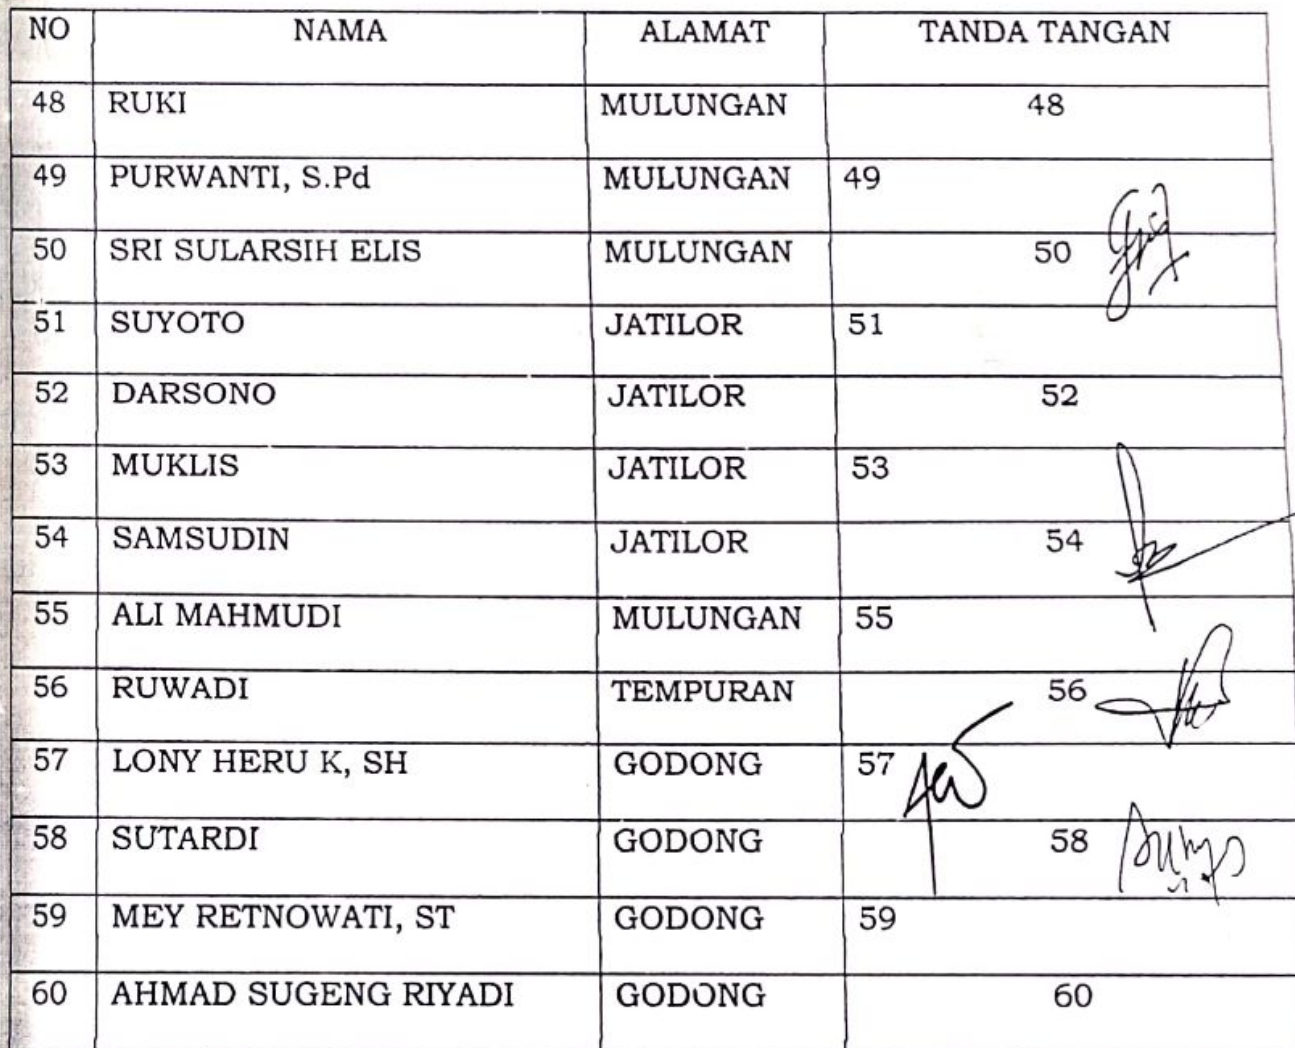 NO NAMA ALAMAT TANDA TANGAN
48 RUKI MULUNGAN 48
49 PURWANTI, S.Pd MULUNGAN 49
50 SRI SULARSIH ELIS MULUNGAN 50
51 SUYOTO JATILOR 51
52 DARSONO JATILOR 52
53 MUKLIS JATILOR 53
54 SAMSUDIN JATILOR 54
55 ALI MAHMUDI MULUNGAN 55
56 RUWADI TEMPURAN 56
57 LONY HERU K, SH GODONG 57
58 SUTARDI GODONG 58
59 MEY RETNOWATI, ST GODONG 59
60 AHMAD SUGENG RIYADI GODONG 60